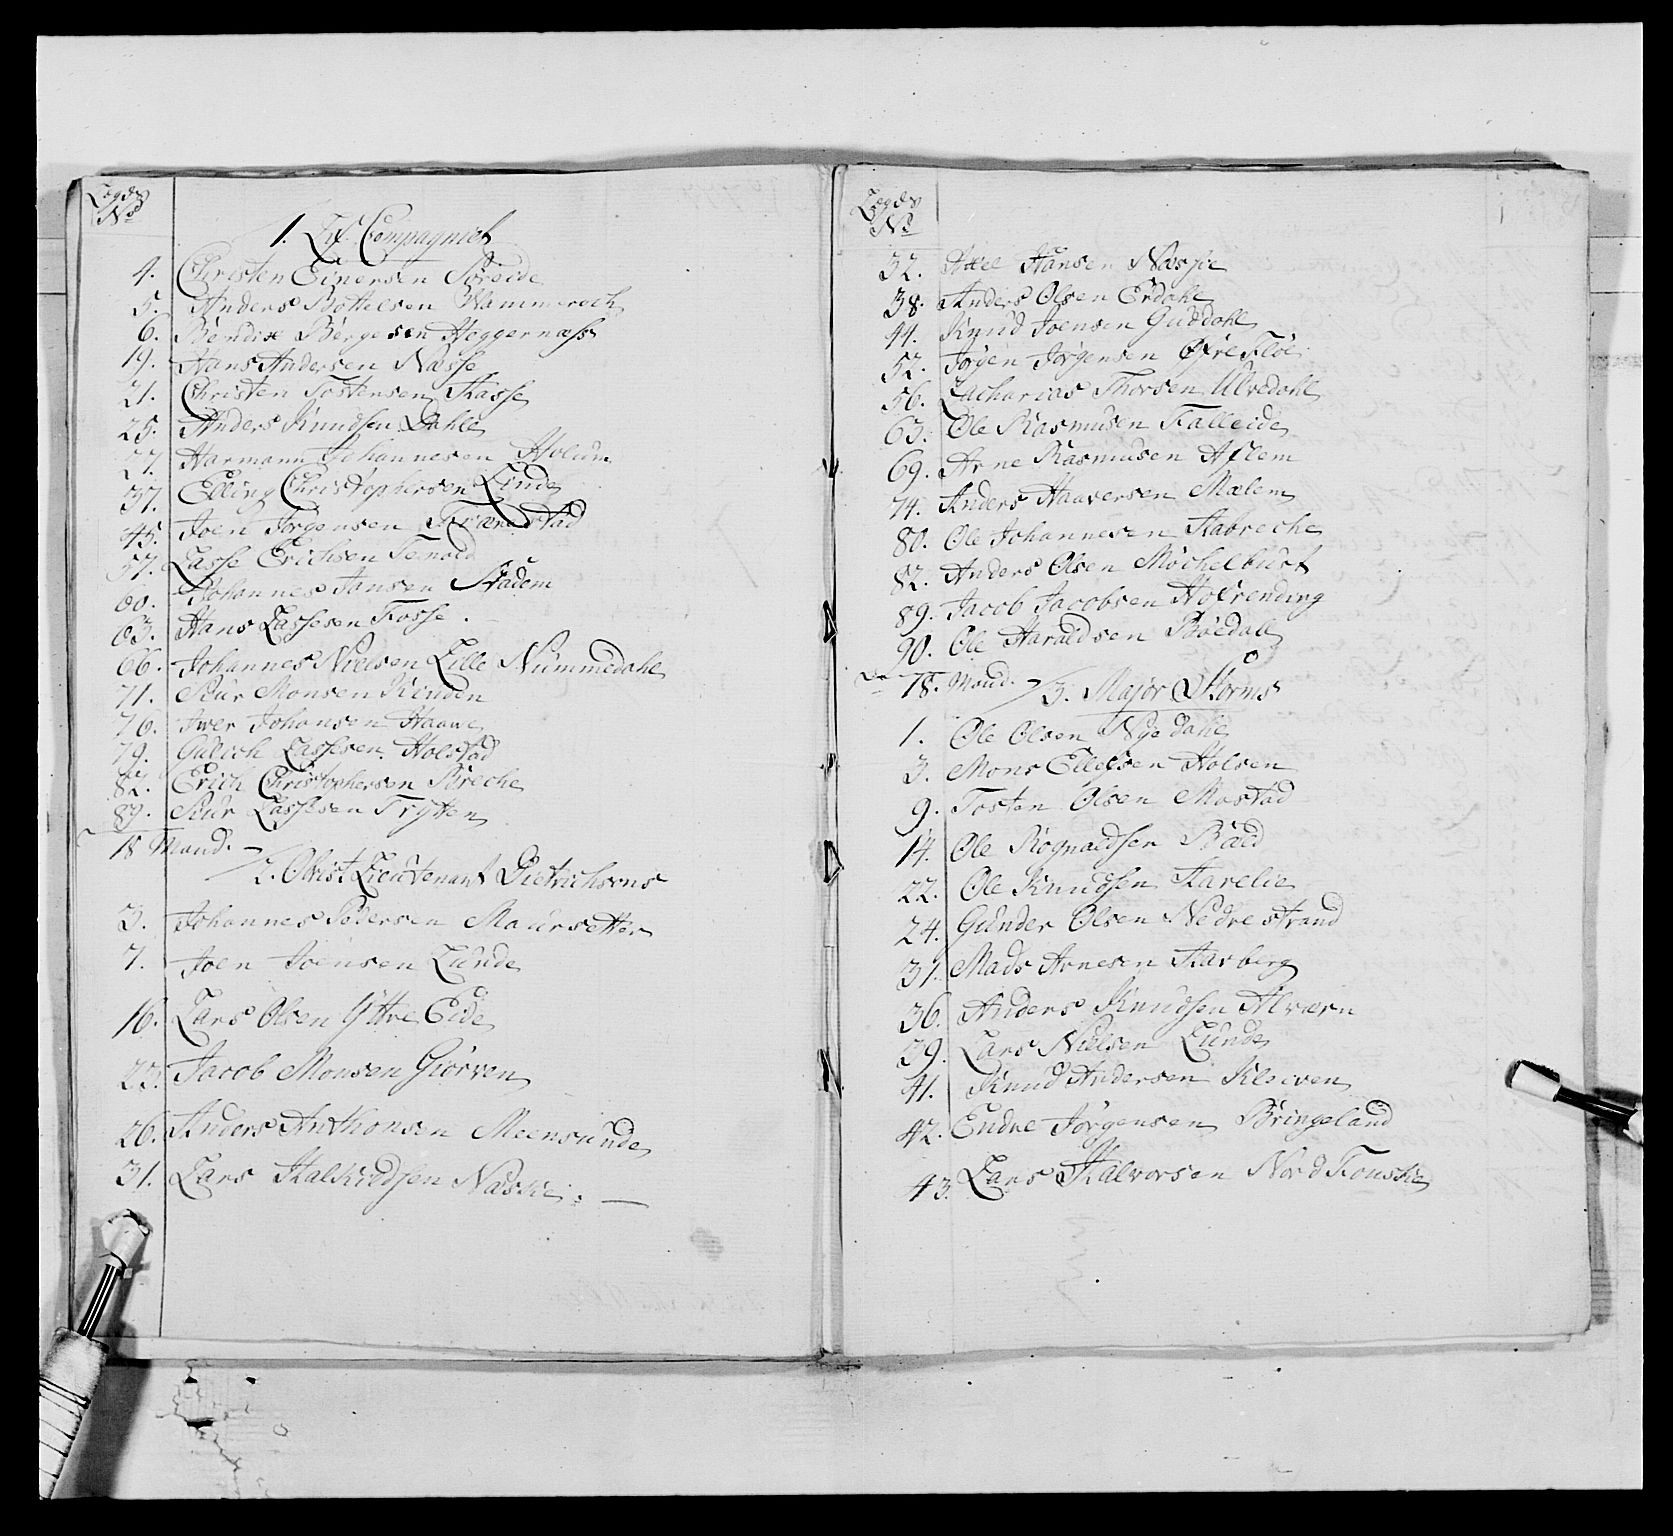 Legds
No
1. Lif Compagniet
4. Christen Einersen Søreide
5. Anders Bottelsen Hammerach
6. Bendix Børgesen Heggernæss
19. Hans Andersen Næsse
21. Christen Tostensen Skasse
25. Anders Knudsen Dahle
27. Harmann Johannesen Holum
37. Elling Christophersen Linde
45. Joen Jørgensen
57. Lasse Erichsen Tenold
60. Johannes Jansen Stadem
63. Hans Lassesen Fosse.
66. Johannes Nielsen Lille Nummedahl
71. Siur Monsen Kinden
76. Iver Johansen Haawe
79. Gulich Lassesen Holstad
82. Erich Christophersen Breche
89. Siur Lassesen Trytten
18 Mand.
2. Obrist Lieutenant Dietrichsons
3. Johannes Pedersen Maursetter
7. Joen Joensen Lunde
16. Lars Olsen Yttre Eide
23. Jacob Monsen Giørven
26. Anders Anthonsen Meensunde
31. Lars Halkildsen Næskie. —
Legds
No
32. Axel Hansen Næssie
38. Anders Olsen Erdahl
44. Knud Joensen Guddahl
52. Jørgen Jørgensen Øfre Fløe
56. Zacharias Thorsen Ulvedahl
63. Ole Rasmusen Falleide
69. Arne Rasmusen Aslem
74. Anders Haaversen Mælem
80. Ole Johannesen Aabreche
82. Anders Olsen Mochelbust
89. Jacob Jacobsen
90. Ole Haraldsen Bøedall
18. Mand.
3. Major Storms
1. Ole Olsen Nyedahl
3. Mons Ellefsen Holsen
9. Tosten Olsen Mostad
14. Ole Rognaldsen Bald
22. Ole Knudsen Aarelie
24. Gunder Olsen Nedrestrand
31. Mads Arnesen Aarberg
36. Anders Knudsen Alværn
39. Lars Nielsen Lunde
41. Knud Andersen Kleeven
42. Endre Jørgensen Bringeland
43. Lars Halvorsen Nord Fonskie